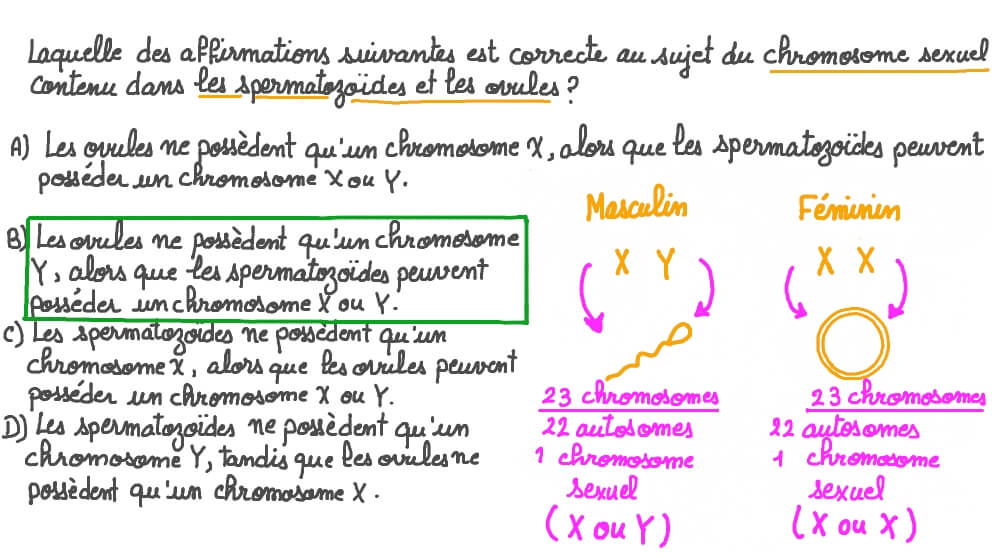 Laquelle des affirmations suivantes est correcte au sujet du chromosome sexuel
contenu dans les spermatozoïdes et les ovules ?
A) Les ovules ne possèdent qu'un chromosome X, alors que les spermatozoïdes peuvent
posséder un chromosome X ou Y.
B) Les ovules ne possèdent qu'un chromosome
Y, alors que les spermatozoïdes peuvent
posséder un chromosome X ou Y.
C) Les spermatozoïdes ne possèdent qu'un
chromosome X, alors que les ovules peuvent
posséder un chromosome X ou Y.
D) Les spermatozoïdes ne possèdent qu'un
chromosome Y, tandis que les ovules ne
possèdent qu'un chromosome X.
Masculin
X Y
23 chromosomes
22 autosomes
1 chromosome
sexuel
(X ou Y)
Féminin
X X
23 chromosomes
22 autosomes
1 chromosome
sexuel
(X ou X)